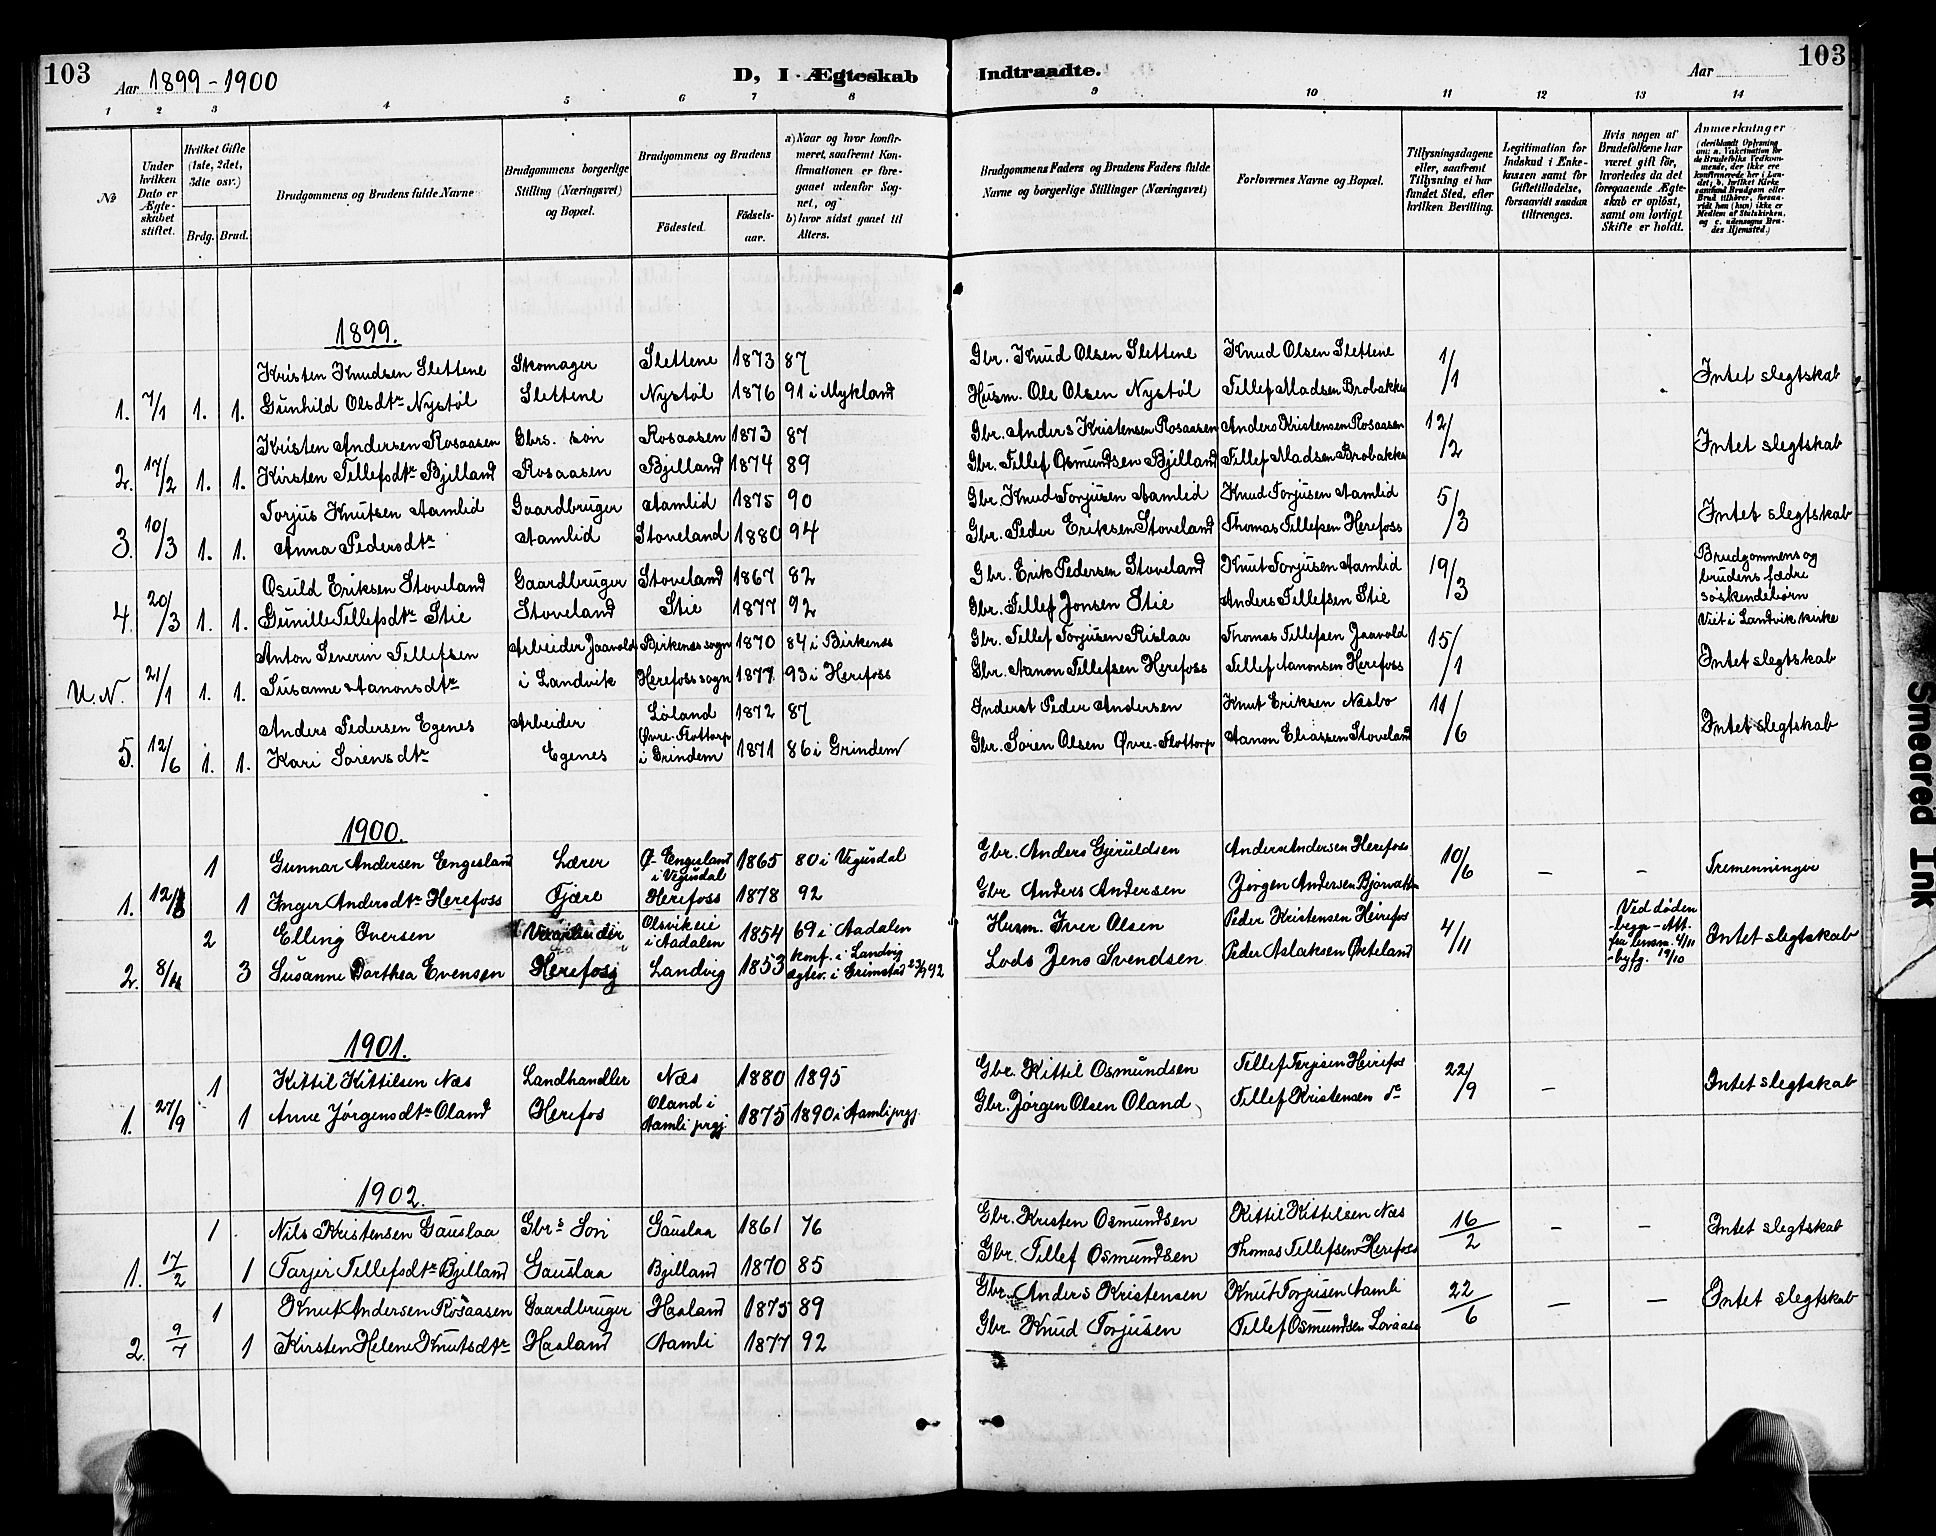 103
Aar 1899-1900
D, I Ægteskab
Indtraadte.
Aar
103
1 2 3 4 5 6 7 8
9 10 11 12 13 14
No
Under hvilken Dato er Ægteskabet stiftet.
Hvilket Gifte (1ste, 2det, 3die osv.)
Brdg. Brud.
Brudgommens og Brudens fulde Navne
Brudgommens borgerlige Stilling (Næringsvei) og Bopæl.
Brudgommens og Brudens
Fødested. Fødselsaar.
a) Naar og hvor konfirmeret, saafremt Konfirmationen er foregaaet udenfor Sognet, og
b) hvor sidst gaaet til Alters.
Brudgommens Faders og Brudens Faders fulde Navne og borgerlige Stillinger (Næringsvei)
Forlovernes Navne og Bopæl.
Tillysningsdagene eller, saafremt Tillysning ei har fundet Sted, efter hvilken Bevilling.
Legitimation for Indskud i Enkekassen samt for Giftetilladelse, forsaavidt saadan tiltrænges.
Hvis nogen af Brudefolkene har været gift før, hvorledes da det foregaaende Ægteskab er opløst, samt om lovligt Skifte er holdt.
Anmærkninger
(deriblandt Oplysning om: a. Vakcination for de Brudefolks Vedkommende, der ikke ere konfirmerede her i Landet, b. hvilket Kirkesamfund Brudgom eller Brud tilhører, forsaavidt han (hun) ikke er Medlem af Statskirken, og c. udensogns Brudes Hjemsted.)
1899.
Kristen Knudsen Slettene Skomager Slettene 1873 87 Gbr. Knud Olsen Slettene Knud Olsen Slettene 1/1 Intet slegtskab
1. 7/1 1. 1. Gunhild Olsdtr Nystøl Slettene Nystøl 1876 91 i Mykland Husm. Ole Olsen Nystøl Tillef Madsen Brobakke
Kristen Andersen Rosaasen Gbrs. søn Rosaasen 1873 87 Gbr. Anders Kristensen Rosaasen Anders Kristensen Rosaasen 12/2 Intet slegtskab
2. 17/2 1. 1. Kirsten Tellefsdtr Bjelland Rosaasen Bjelland 1874 89 Gbr. Tellef Osmundsen Bjelland Tellef Madsen Brobakke
Torjus Knutsen Aamlid Gaardbruger Aamlid 1875 90 Gbr. Knud Torjusen Aamlid Knud Torjusen Aamlid 5/3 Intet slegtskab
3. 10/3 1. 1. Anna Pedersdtr Aamlid Stoveland 1880 94 Gbr. Peder Eriksen Stoveland Thomas Tellefsen Herefoss
Osuld Eriksen Stoveland Gaardbruger Stoveland 1867 82 Gbr. Erik Pedersen Stoveland Knut Torjusen Aamlid 19/3 Brudgommens og
brudens fædre
søskendebørn
4. 20/3 1. 1. Gunille Tellefsdtr Stie Stoveland Stie 1877 92 Gbr. Tellef Jonsen Stie Anders Tellefsen Stie
Viet i Landvik kirke
Anton Severin Tellefsen Arbeider Jaavold Birkenes sogn 1870 84 i Birkenes Gbr. Tellef Torjusen Rislaa Thomas Tellefsen Jaavold 15/1 Intet slegtskab
U.N. 21/1 1. 1. Susanne Aanonsdtr i Landvik Herefoss sogn 1877 93 i Herefoss Gbr. Aanon Tellefsen Herefoss Tellef Aanonsen Herefoss
Anders Pedersen Egenes Arbeider Løland 1872 87 Inderst Peder Andersen Knut Eriksen Næsbo 11/6 Intet slegtskab
5. 12/6 1. 1. Kari Sørensdtr Egenes Øvre-Flottorp i Grindem 1871 86 i Grindem Gbr. Søren Olsen Øvre-Flottorp Aanon Eliassen Stoveland
1900.
1 Gunnar Andersen Engesland Lærer Ø-Engesland i Vegusdal 1865 80 i Vegusdal Gbr. Anders Gjeruldsen Anders Andersen Herefoss 10/6 – – Tremenninger
1. 12/ 1 Inger Andersdtr Herefoss Tjære Herefoss 1878 92 Gbr. Anders Andersen Jørgen Andersen Bjorvatten
2 Elling Iversen Olsvikeie i Aadalen 1854 69 i Aadalen Husm. Iver Olsen Peder Kristensen Heirefos 4/11 Ved døden
begge - Att.
fra lensm. 4/11
- byfg. 19/10 Intet slegtskab
2. 8/11 3 Susanne Dorthea Evensen Herefos Landvig 1853 konf. i Landvig
ægtev. i Grimstad 92 Lods Jens Svendsen Peder Aslaksen Ørteland
1901.
1 Kittil Kittilsen Næs Landhandler Næs 1880 1895 Gbr. Kittil Osmundsen Tellef Terjesen Heirefos 22/9 – Intet slegtskab
1. 27/9 1 Anne Jørgensdtr Oland Herefos Oland i Aamli prgj. 1875 1890 i Aamli prgj. Gbr. Jørgen Olsen Oland Tellef Kristensen do
1902.
1 Nils Kristensen Gauslaa Gbrs Søn Gauslaa 1861 76 Gbr. Kristen Osmundsen Kittil Kittilsen Næs 16/2 – – Intet slegtskab
1. 17/2 1 Tarjer Tellefsdtr Bjelland Gauslaa Bjelland 1870 85 Gbr. Tellef Osmundsen Thomas Tellefsen Herefoss
1 Knut Andersen Rosaasen Gaardbruger Haaland 1875 89 Gbr. Anders Kristensen Knut Torjusen Aamli 22/6 – – Intet slegtskab
2. 9/7 1 Kirsten Helene Knutsdtr Haaland Aamli 1877 92 Gbr. Knud Torjusen Tellef Osmundsen Lovaas
Smeared Ink